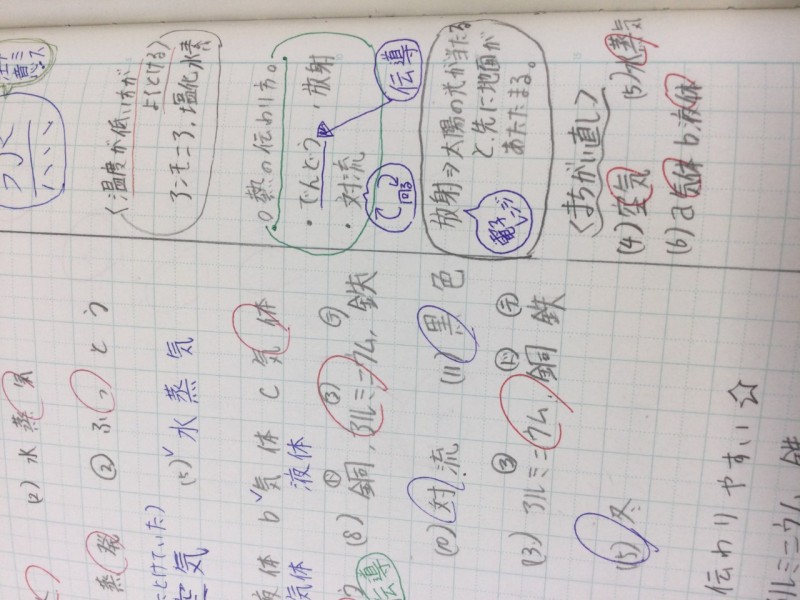 〈温度が低い方が
よくとける〉
アンモニア,塩化水素
○熱の伝わり方。
・でんどう
・放射
・対流
伝導
回る
放射⇒太陽の光が当たる
と先に地面が
あたたまる。
〈まちがい直し〉
(4)空気
(5)水蒸気
(6)a気体 b液体
(2)水蒸気
②ふっとう
(5)水蒸気
b 気体
液体
c 気体
(8)銅,アルミニウム,鉄
(10)対流
(11)黒色
(13)アルミニウム,銅 鉄
(15)冬
伝わりやすい☆
蒸発
とけていた)
空気
液体
気体
伝導
アルミニウム 鉄